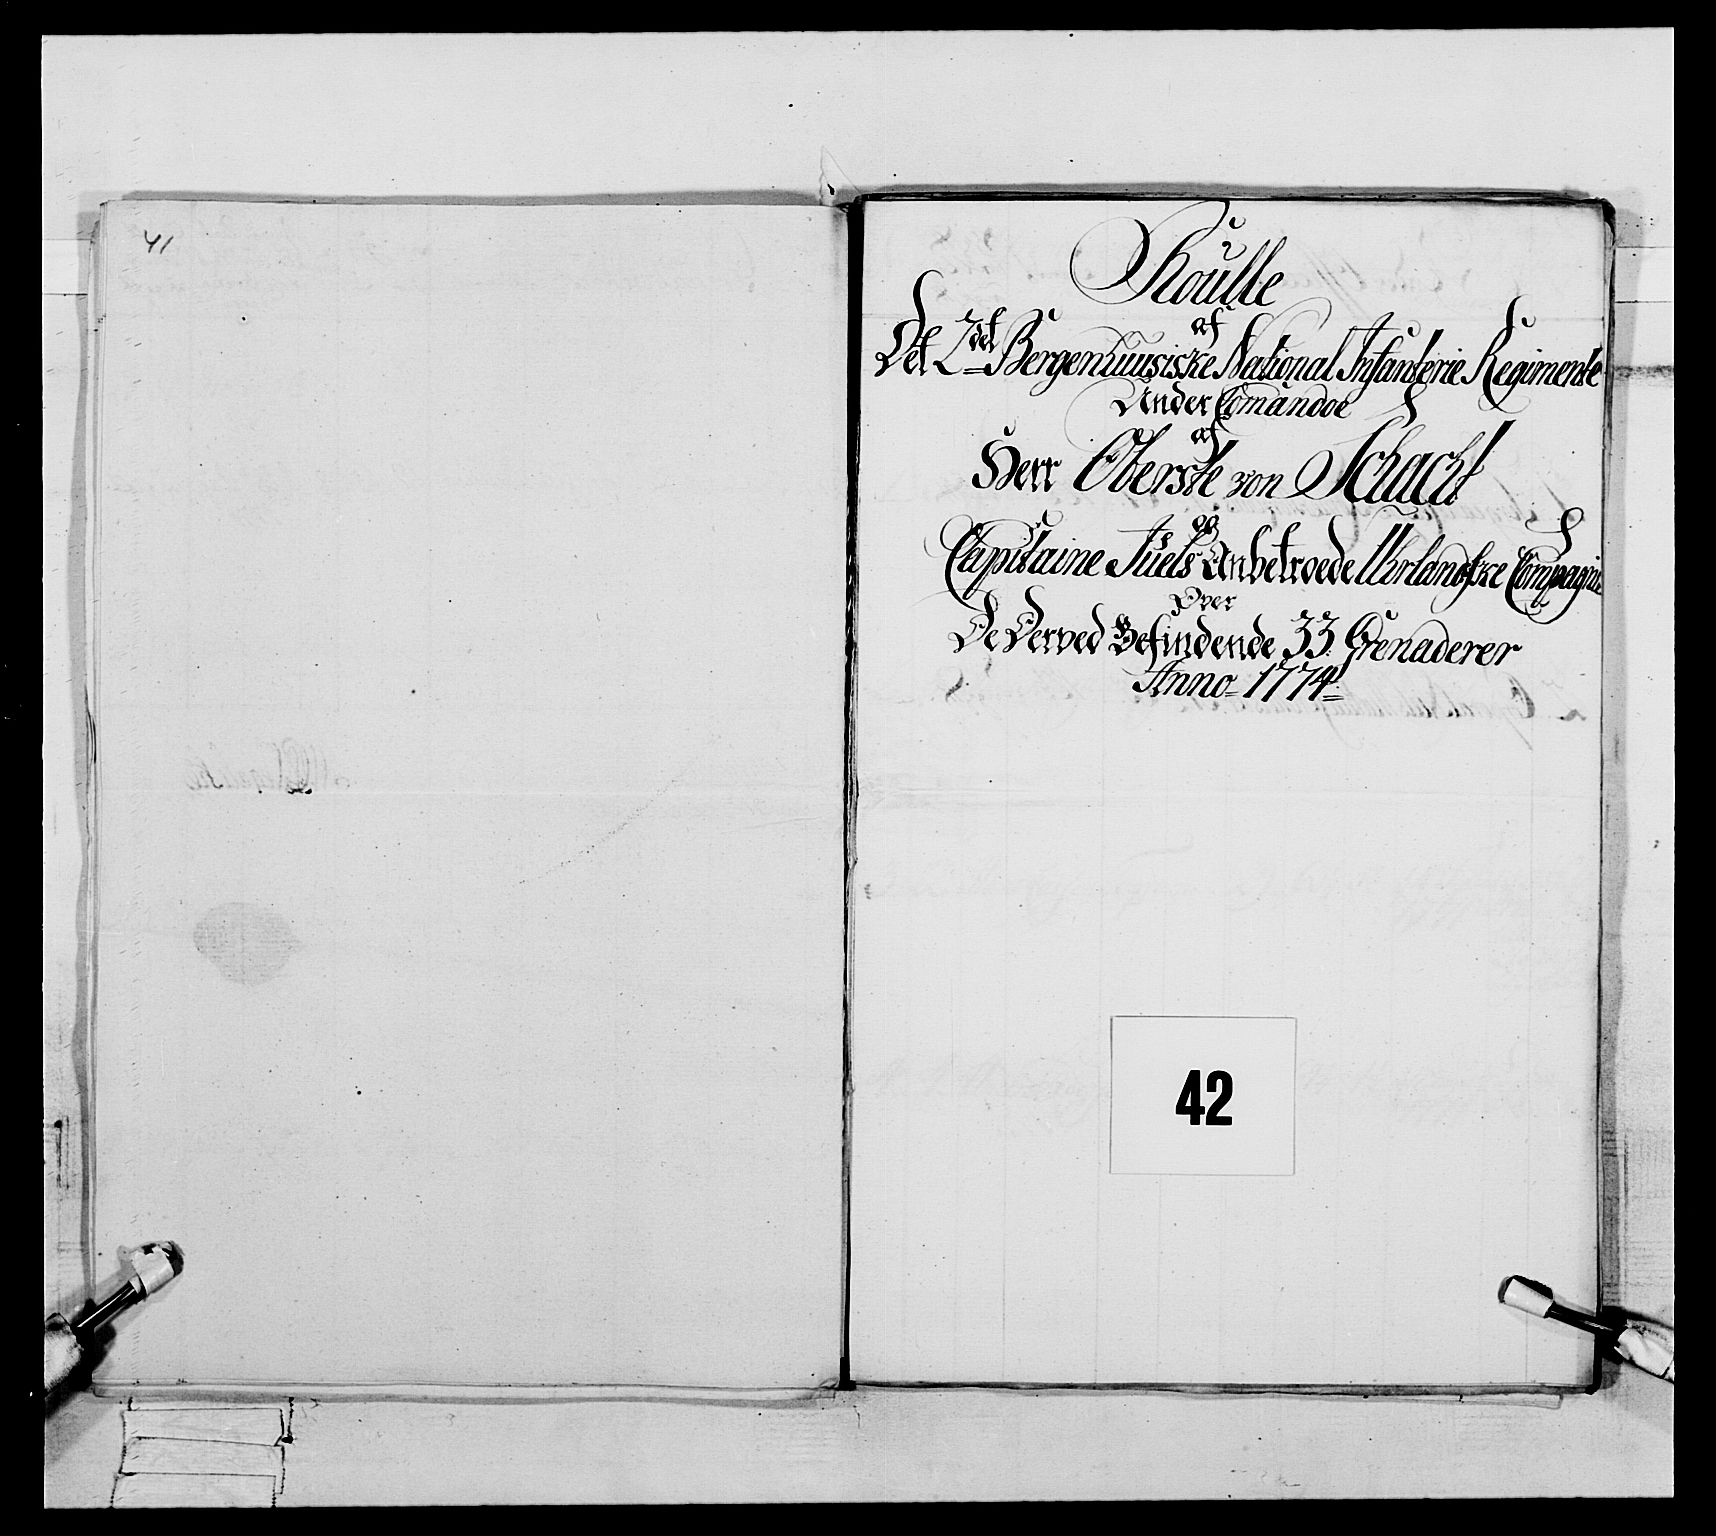 41
Roulle
af
Det 2det Bergenhuusiske National Infanterie Regimente
Under Comandoe
af
Herr Oberste von Schacht
og
Capitaine Juels Anbetroede Urlandske Compagnie
Over
De Derved Befindende 33 Grenaderer
Anno 1774
42